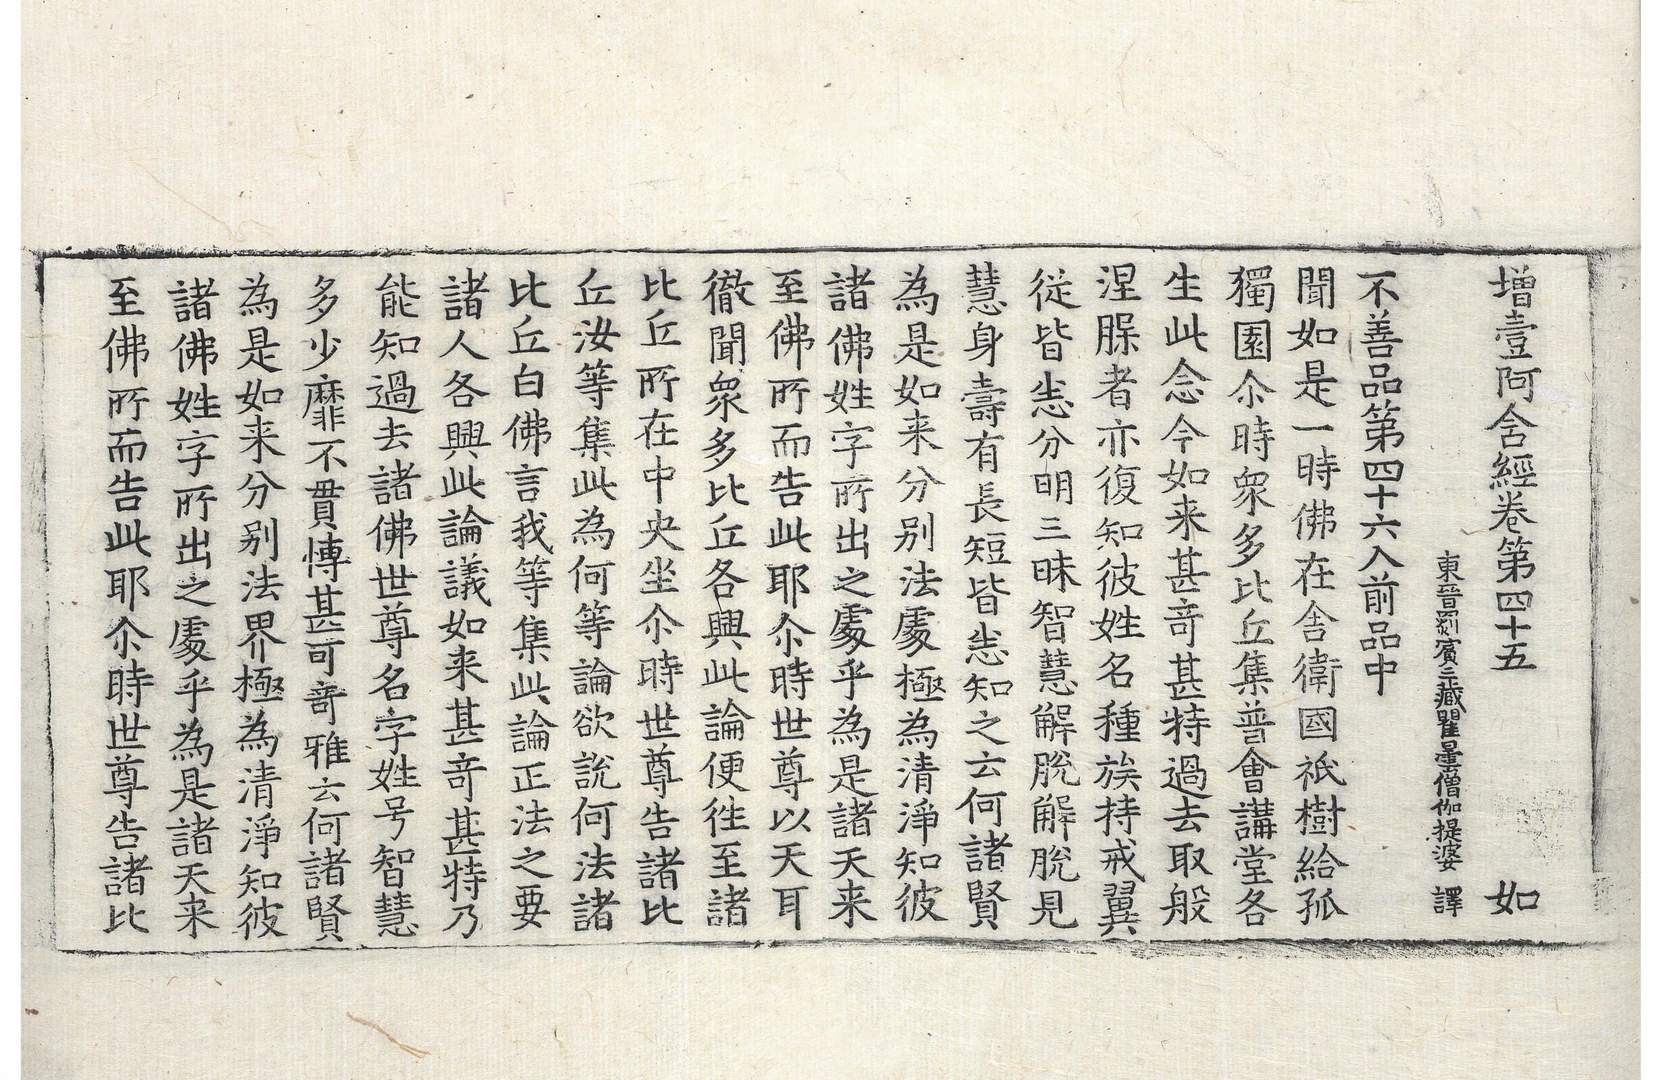 增壹阿含經卷第四十五 如
東晉罽賓三藏瞿曇僧伽提婆 譯
不善品第四十六入前品中
聞如是一時佛在舍衛國祇樹給孤
獨園尒時衆多比丘集普會講堂各
生此念今如来甚竒甚特過去取般
涅槃者亦復知彼姓名種族持戒翼
從皆悉分明三昧智慧解脫解脫見
慧身壽有長短皆悉知之云何諸賢
為是如来分别法處極為清淨知彼
諸佛姓字所出之處乎為是諸天来
至佛所而告此耶尒時世尊以天耳
徹聞衆多比丘各興此論便徃至諸
比丘所在中央坐尒時世尊告諸比
丘汝等集此為何等論欲說何法諸
比丘白佛言我等集此論正法之要
諸人各興此論議如来甚竒甚特乃
能知過去諸佛世尊名字姓号智慧
多少靡不貫愽甚可竒雅云何諸賢
為是如来分别法界極為清淨知彼
諸佛姓字所出之處乎為是諸天来
至佛所而告此耶尒時世尊告諸比